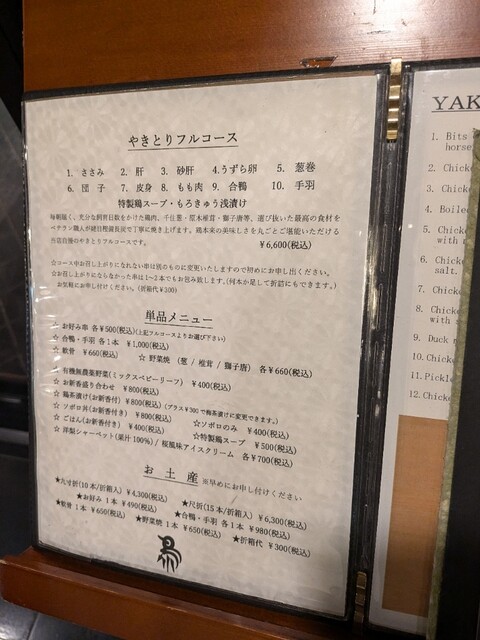 やきとりフルコース
1. ささみ 2. 肝 3. 砂肝 4.うずら卵 5. 葱巻
6. 団 子 7. 皮身 8. もも肉 9. 合鴨 10. 手羽
特製鶏スープ・もろきゅう浅漬け
毎朝届く、充分な飼育日数をかけた鶏肉、千住葱・原木椎茸・獅子唐等、選び抜いた最高の食材を
ベテラン職人が紀州備長炭で丁寧に焼き上げます。鶏本来の美味しさを丸ごとご堪能いただける
当店自慢のやきとりフルコースです。
¥6,600(税込)
☆コース中お召し上がりになれない串は別のものに変更いたしますので初めにお申し出ください。
☆お召し上がりにならなかった串は1~2本でもお包み致します。(何本か足して折詰にもできます。)
お気軽にお申し付けください。(折箱代 ¥300)
単品メニュー
☆ お好み串 各¥500(税込)(上記フルコースよりお選び下さい)
☆ 合鴨・手羽 各1本 ¥1,000(税込)
☆ 軟骨 ¥660(税込) ☆ 野菜焼 (葱 / 椎茸 / 獅子唐) 各¥660(税込)
有機無農薬野菜(ミックスベビーリーフ) ¥400(税込)
☆ お新香盛り合わせ ¥800(税込)
☆ 鶏茶漬け(お新香付) ¥800(税込)(プラス¥300で鴨茶漬けに変更できます。)
☆ ソボロ丼(お新香付き) ¥800(税込) ☆ソボロのみ ¥400(税込)
☆ ごはん(お新香付き) ¥400(税込) ☆特製鶏スープ ¥500(税込)
☆ 洋梨シャーベット(果汁100%) / 桜風味アイスクリーム 各¥700(税込)
お 土 産 ※早めにお申し付けください
★九寸折(10本/折箱入) ¥4,300(税込) ★尺折(15本/折箱入) ¥6,300(税込)
★お好み 1本 ¥490(税込) ★合鴨・手羽 各1本 ¥980(税込)
★軟骨 1本 ¥650(税込) ★野菜焼 1本 ¥650(税込) ★折箱代 ¥300(税込)
YAK
1. Bits
horse
2. Chicke
3. Chick
4. Boiled
5. Chicke
with
6. Chick
salt.
7. Chick
8. Chick
with
9. Duck
10. Chick
11. Pickle
12. Chick